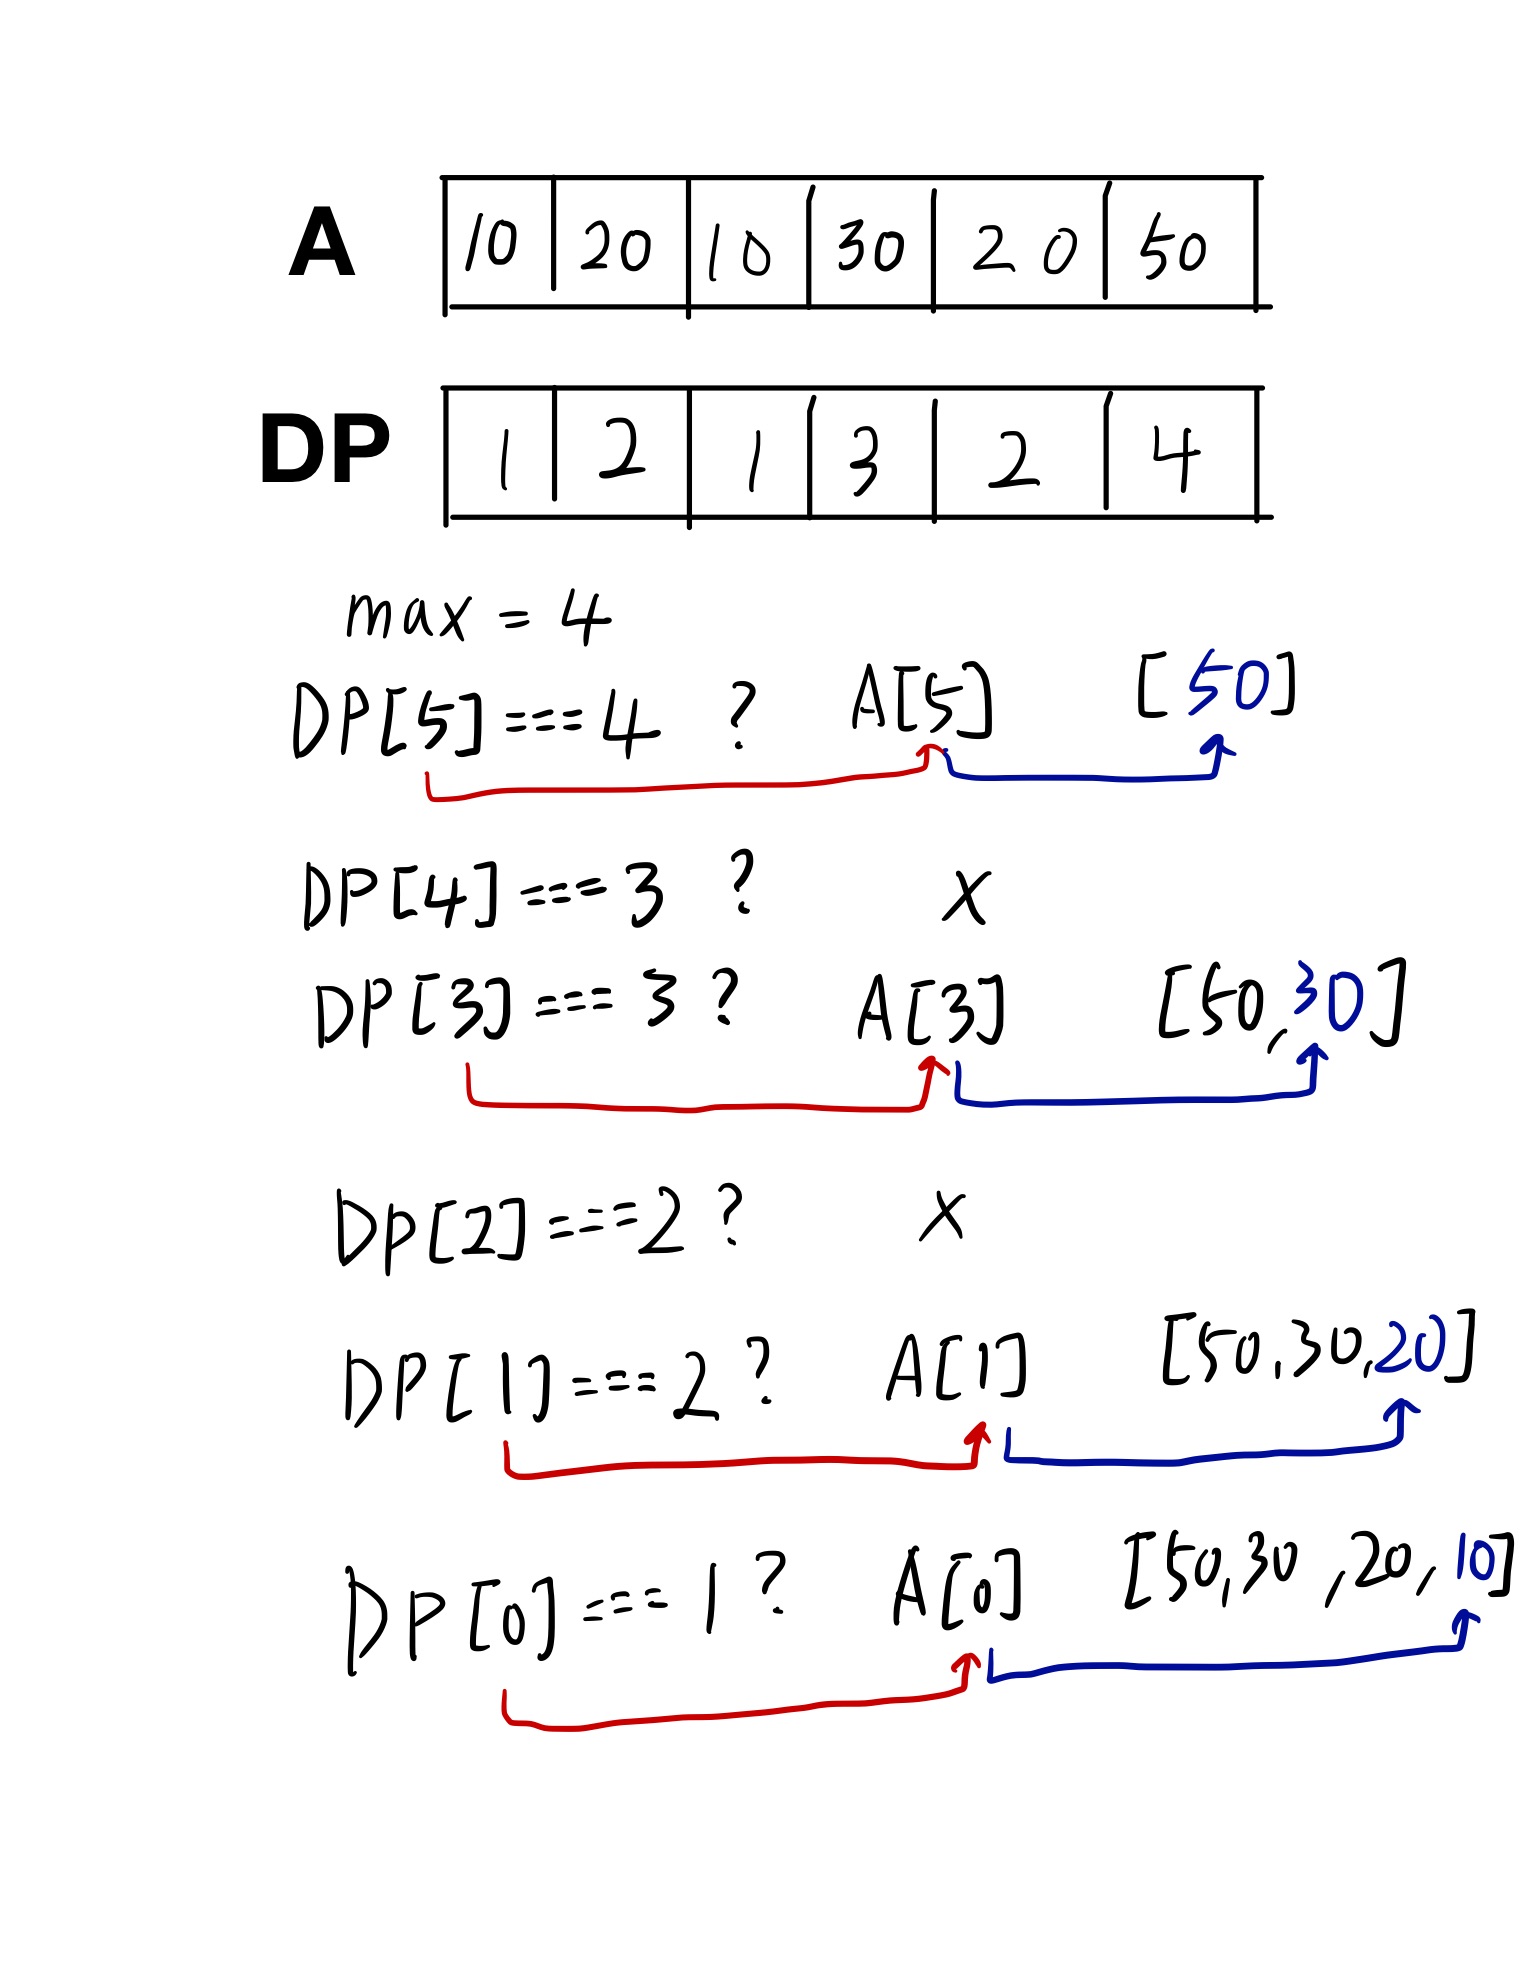 A 10 20 10 30 20 50
DP 1 2 1 3 2 4
max = 4
DP[5] === 4 ? A[5] [50]
DP[4] === 3 ? X
DP[3] === 3 ? A[3] [50, 30]
DP[2] === 2 ? X
DP[1] === 2 ? A[1] [50, 30, 20]
DP[0] === 1 ? A[0] [50, 30, 20, 10]